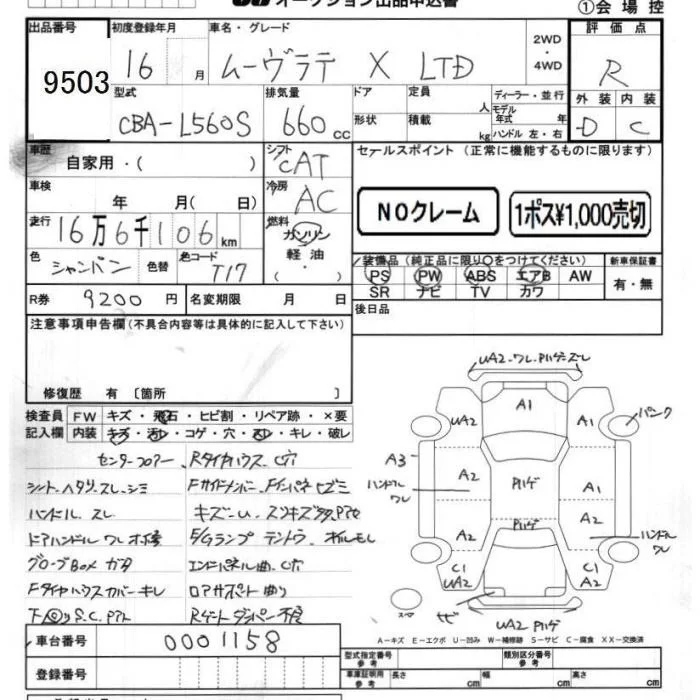 オークション出品申込書
①会場控
出品番号
9503
初度登録年月
16 月
車名・グレード
ムーヴラテ X LTD
2WD
・
4WD
評価点
R
型式
CBA-L560S
排気量
660 cc
ドア
形状
定員 人
積載 kg
ディーラー・並行
モデル年式 年
ハンドル 左・右
外装 内装
D C
車歴
自家用・( )
シフト
CAT
車検
年 月( 日)
冷房
AC
走行
16万6千106km
燃料
ガソリン
軽油
( )
色
シャンパン
色替
色コード
T17
R券
9200 円
名変期限 月 日
セールスポイント(正常に機能するものに限ります)
NOクレーム
1ポス¥1,000売切
装備品(純正品に限り○をつけてください)
PS PW ABS エアB AW
SR ナビ TV カワ
新車保証書
有・無
後日品
注意事項申告欄(不具合内容等は具体的に記入して下さい)
修復歴 有 〔箇所 〕
検査員記入欄
FW キズ・飛石・ヒビ割・リペア跡・×要
内装 キズ・汚レ・コゲ・穴・スレ・キレ・破レ
センターフロアー、Rタイヤハウス 穴
シート ヘタリ・スレ・シミ
ハンドル スレ
ドアハンドル ワレ
グローブBOX ガタ
Fタイヤハウスカバー キレ
エンドパネル曲 穴
ロアサポート曲り
Rゲートダンパー不良
下回りS.C.Pアト
車台番号 0001158
登録番号
UA2・ワレ
A1
UA2
A1
パンク
A3
ハンドルワレ
A2
A1
A2
A2
ハンドルワレ
C1
UA2
C1
A2
スペア
サビ
UA2
A-キズ E-エクボ U-凹み W-補修跡 S-サビ C-腐食 XX-交換済
型式指定番号
参考
類別区分番号
参考
車庫証明用
参考
長さ cm
幅 cm
高さ cm